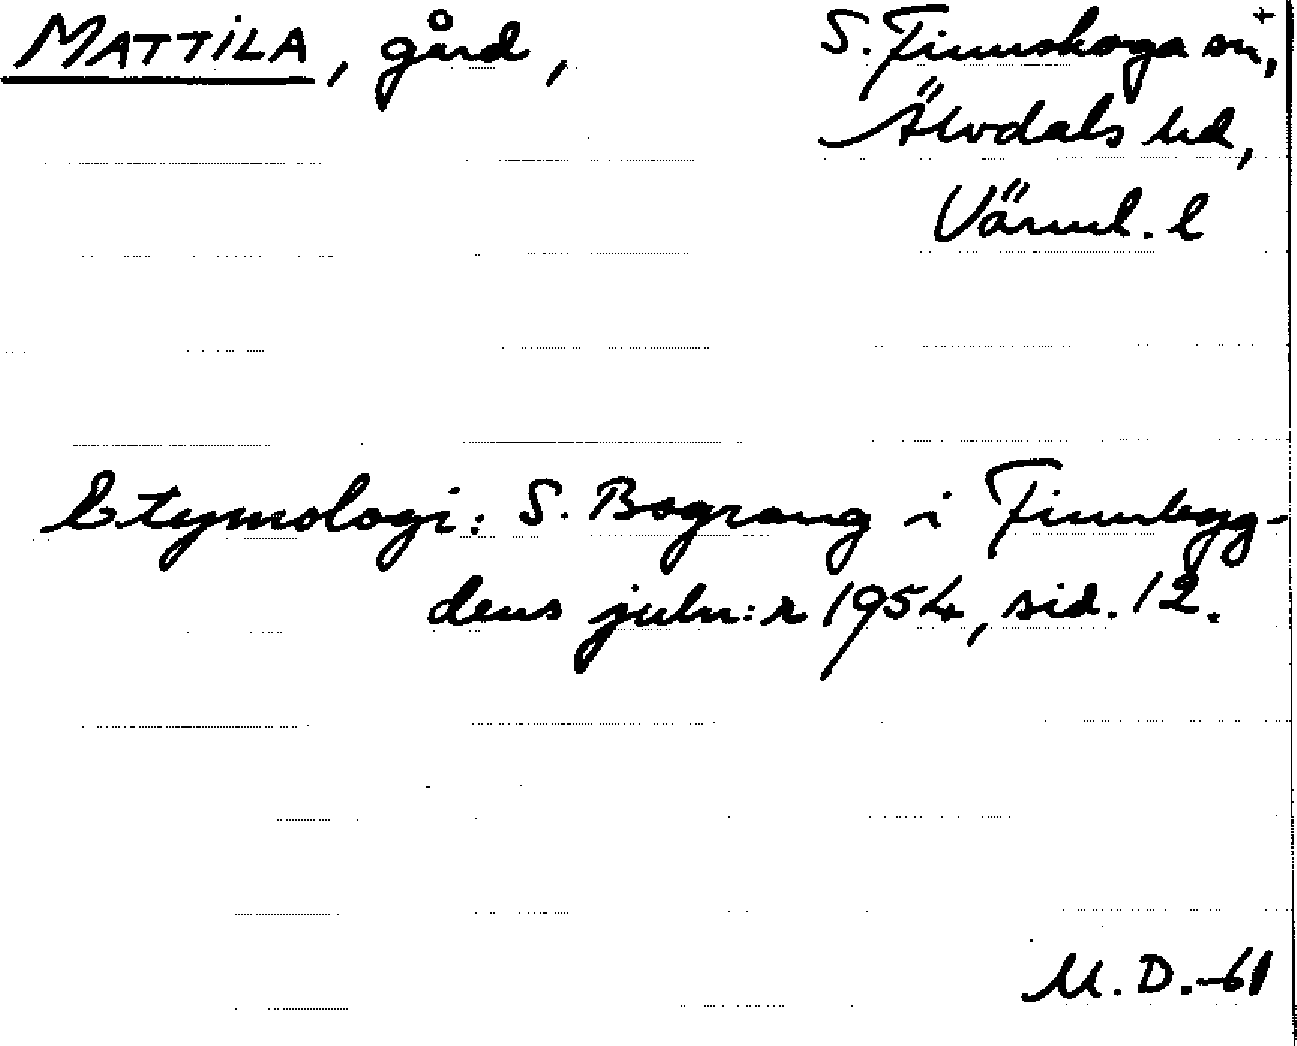 MATTILA, gård, S. Finnskoga sn,
Älvdals hd,
Värml. l
Etymologi: S. Bograng i Finnbygg-
dens juln:r 1954, sid. 12.
M. D. -61